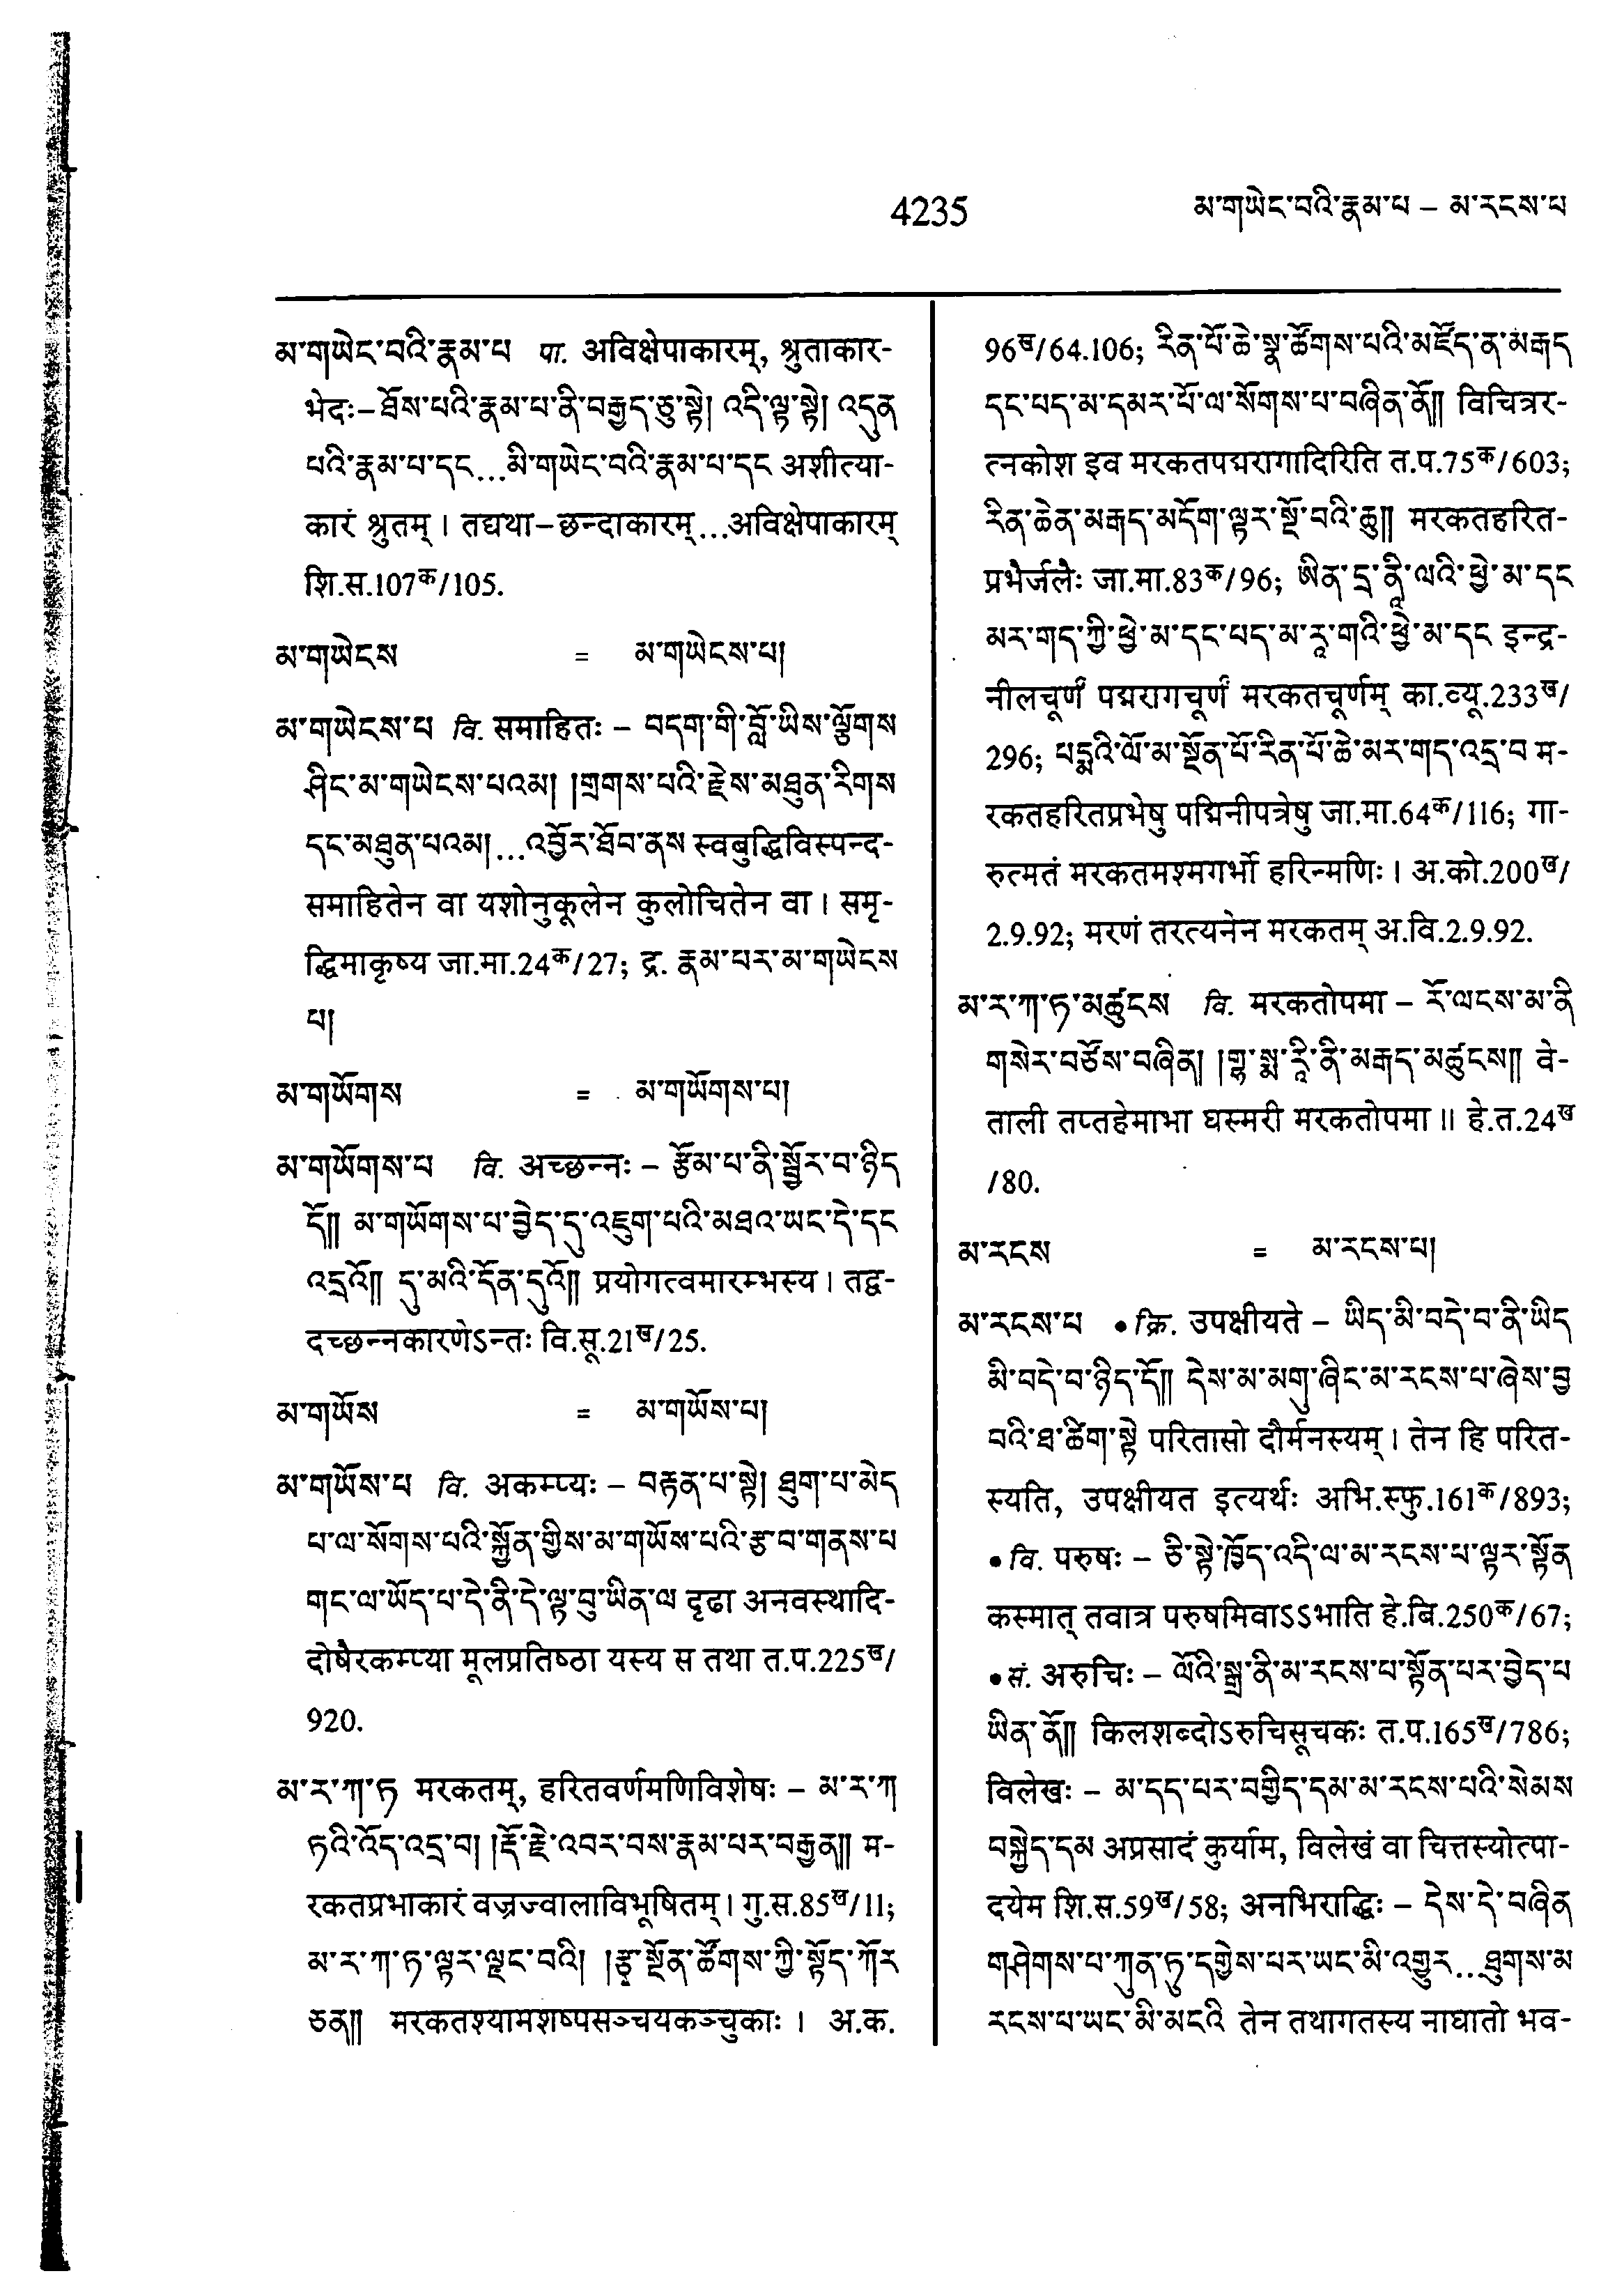 4235
མ་གཡེང་བའི་རྣམ་པ – མ་རངས་པ
མ་གཡེང་བའི་རྣམ་པ पा. अविक्षेपाकारम्, श्रुताकार-
भेदः– ཐོས་པའི་རྣམ་པ་ནི་བརྒྱད་ཅུ་སྟེ། འདི་ལྟ་སྟེ། འདུན
པའི་རྣམ་པ་དང...མི་གཡེང་བའི་རྣམ་པ་དང अशीत्या-
कारं श्रुतम् । तद्यथा–छन्दाकारम्...अविक्षेपाकारम्
शि.स.107क/105.
མ་གཡེངས = མ་གཡེངས་པ།
མ་གཡེངས་པ वि. समाहितः – བདག་གི་བློ་ཡིས་ལྕོགས
ཤིང་མ་གཡེངས་པའམ། །གྲགས་པའི་རྗེས་མཐུན་རིགས
དང་མཐུན་པའམ།...འབྱོར་ཐོབ་ནས स्वबुद्धिविस्पन्द-
समाहितेन वा यशोनुकूलेन कुलोचितेन वा । समृ-
द्धिमाकृष्य जा.मा.24क/27; द्र. རྣམ་པར་མ་གཡེངས
པ།
མ་གཡོགས = མ་གཡོགས་པ།
མ་གཡོགས་པ वि. अच्छन्नः – རྩོམ་པ་ནི་སྦྱོར་བ་ཉིད
དོ།། མ་གཡོགས་པ་བྱེད་དུ་འཇུག་པའི་མཐའ་ཡང་དེ་དང
འདྲའོ།། དུ་མའི་དོན་དུའོ།། प्रयोगत्वमारम्भस्य । तद्व-
दच्छन्नकारणेऽन्तः वि.सू.21ख/25.
མ་གཡོས = མ་གཡོས་པ།
མ་གཡོས་པ वि. अकम्प्यः – བརྟན་པ་སྟེ། ཐུག་པ་མེད
པ་ལ་སོགས་པའི་སྐྱོན་གྱིས་མ་གཡོས་པའི་རྩ་བ་གནས་པ
གང་ལ་ཡོད་པ་དེ་ནི་དེ་ལྟ་བུ་ཡིན་ལ दृढा अनवस्थादि-
दोषैरकम्प्या मूलप्रतिष्ठा यस्य स तथा त.प.225ख/
920.
མ་ར་ཀ་ཏ मरकतम्, हरितवर्णमणिविशेषः – མ་ར་ཀ
ཏའི་འོད་འདྲ་བ། །རྡོ་རྗེ་འབར་བས་རྣམ་པར་བརྒྱན།། म-
रकतप्रभाकारं वज्रज्वालाविभूषितम् । गु.स.85ख/11;
མ་ར་ཀ་ཏ་ལྟར་ལྗང་བའི། །རྩྭ་སྔོན་ཚོགས་ཀྱི་སྟོད་ཀོར
ཅན།། मरकतश्यामशष्पसञ्चयकञ्चुकाः । अ.क.
96ख/64.106; རིན་པོ་ཆེ་སྣ་ཚོགས་པའི་མཛོད་ན་མརྒད
དང་པད་མ་དམར་པོ་ལ་སོགས་པ་བཞིན་ནོ།། विचित्रर-
त्नकोश इव मरकतपद्मरागादिरिति त.प.75क/603;
རིན་ཆེན་མརྒད་མདོག་ལྟར་སྔོ་བའི་ཆུ།། मरकतहरित-
प्रभैर्जलैः जा.मा.83क/96; ཨིན་དྲ་ནཱི་ལའི་ཕྱེ་མ་དང
མར་གད་ཀྱི་ཕྱེ་མ་དང་པད་མ་རཱ་གའི་ཕྱེ་མ་དང इन्द्र-
नीलचूर्णं पद्मरागचूर्णं मरकतचूर्णम् का.व्यू.233ख/
296; པདྨའི་ལོ་མ་སྔོན་པོ་རིན་པོ་ཆེ་མར་གད་འདྲ་བ म-
रकतहरितप्रभेषु पद्मिनीपत्रेषु जा.मा.64क/116; गा-
रुत्मतं मरकतमश्मगर्भो हरिन्मणिः । अ.को.200ख/
2.9.92; मरणं तरत्यनेन मरकतम् अ.वि.2.9.92.
མ་ར་ཀ་ཏ་མཚུངས वि. मरकतोपमा – རོ་ལངས་མ་ནི
གསེར་བཙོས་བཞིན། །གྷ་སྨ་རཱི་ནི་མརྒད་མཚུངས།། वे-
ताली तप्तहेमाभा घस्मरी मरकतोपमा ॥ हे.त.24ख
/80.
མ་རངས = མ་རངས་པ།
མ་རངས་པ • क्रि. उपक्षीयते – ཡིད་མི་བདེ་བ་ནི་ཡིད
མི་བདེ་བ་ཉིད་དོ།། དེས་མ་མགུ་ཞིང་མ་རངས་པ་ཞེས་བྱ
བའི་ཐ་ཚིག་སྟེ परितासो दौर्मनस्यम् । तेन हि परित-
स्यति, उपक्षीयत इत्यर्थः अभि.स्फु.161क/893;
• वि. परुषः – ཅི་སྟེ་ཁྱོད་འདི་ལ་མ་རངས་པ་ལྟར་སྟོན
कस्मात् तवात्र परुषमिवाऽऽभाति हे.बि.250क/67;
• सं. अरुचिः – ལོའི་སྒྲ་ནི་མ་རངས་པ་སྟོན་པར་བྱེད་པ
ཡིན་ནོ།། किलशब्दोऽरुचिसूचकः त.प.165ख/786;
विलेखः – མ་དད་པར་བགྱིད་དམ་མ་རངས་པའི་སེམས
བསྐྱེད་དམ अप्रसादं कुर्याम, विलेखं वा चित्तस्योत्पा-
दयेम शि.स.59ख/58; अनभिराद्धिः – དེས་དེ་བཞིན
གཤེགས་པ་ཀུན་ཏུ་དགྱེས་པར་ཡང་མི་འགྱུར...ཐུགས་མ
རངས་པ་ཡང་མི་མངའི तेन तथागतस्य नाघातो भव-